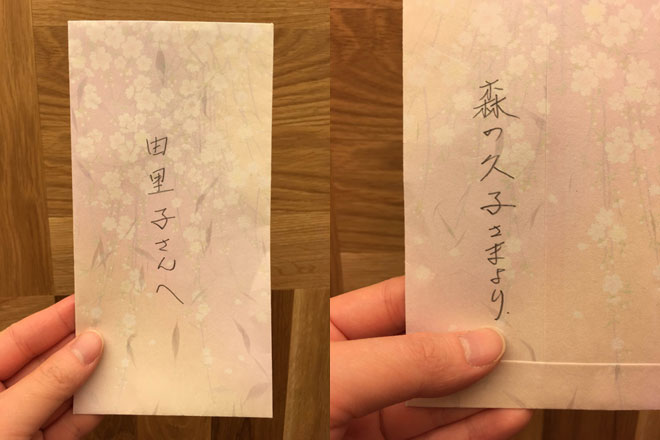 由里子さんへ
森の久子さまより.